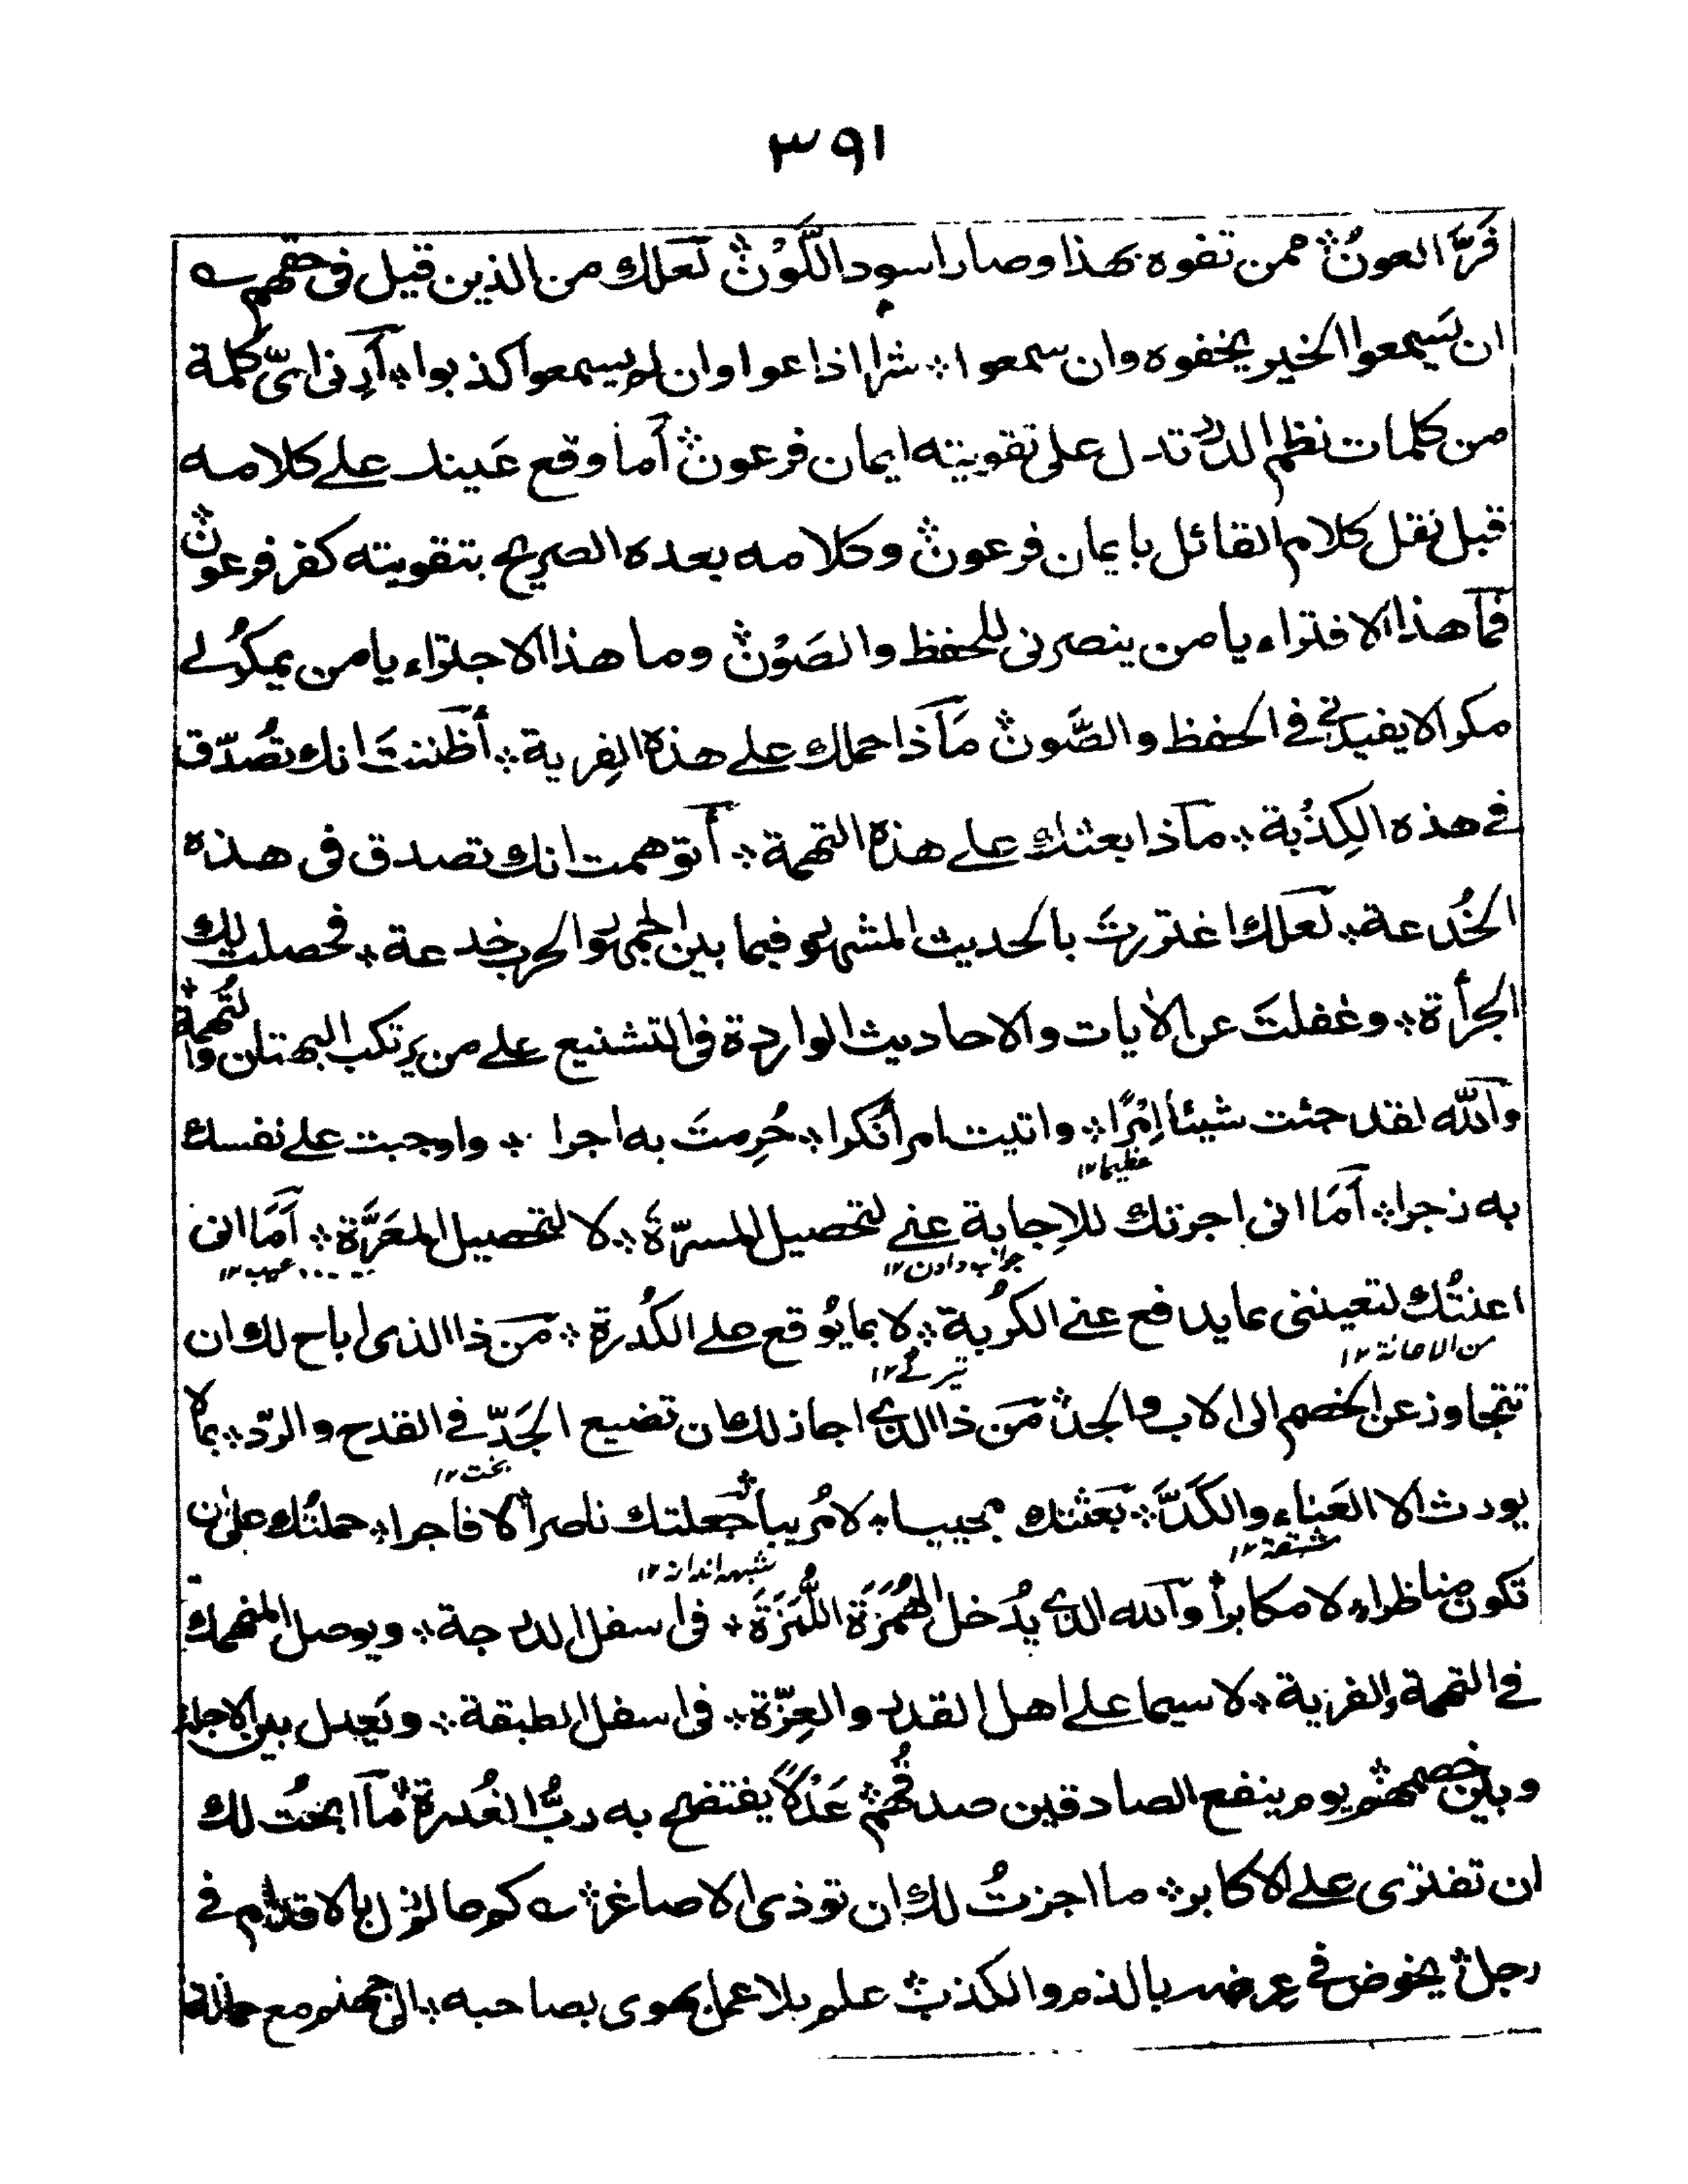 ٣٩١
فَرَّ العونُ ؞ ممن تفوه بهذا وصار اسود اللَّوْن ؞ لعلك من الذين قيل فى حقهم ؎
ان يَسمعوا الخير يخفوه وان سمعوا ؞ شرا اذاعوا وان لم يسمعوا كذبوا ؞ اَرِنى اىّ كلمة
من كلمات نظم الدرر تدل على تقويته ايمان فرعون ؞ أما وقع عَينك على كلامه
قبل نقل كلام القائل بايمان فرعون ؞ وكلامه بعده الصريح بتقويته كفر فرعون ؞
فما هذا الافتراء يا من ينصرنى للحفظ والصَوْن ؞ وما هذا الاجتراء يا من يمكُر لى
مكرا لا يفيدنى فى الحفظ والصَّون ؞ مَاذا حملك على هذه الفِرية ؞ أظننتَ انك تُصدّق
فى هذه الكِذْبة ؞ ماذا بعثك على هذه التهمة ؞ أتوهمت انك تصدق فى هذه
الخُدعة ؞ لعلك اغتررتَ بالحديث المشهور فيما بين الجمهور الحرب خدعة ؞ فحصلت لك
الجرأة ؞ وغفلتَ عن الأيات والاحاديث الواردة فى التشنيع على من يرتكب البهتان والتُهمة ؞
والله لقد جئت شيئا اِمْرًا ؞ واتيت امرا نُكرا ؞ حُرِمتَ به اجرا ؞ واوجبت على نفسك
عظيما ١٢
به زجرا ؞ اَمَا انى اجرتك للاِجابة عنى لتحصيل المسرّة ؞ لا لتحصيل المعَرَّة ؞ اَمَا انى
جواب دادن ١٢ عيب ١٢
اعنتُك لتعيننى بما يدفع عنى الكُربة ؞ لا بما يُوقع على الكُدرة ؞ مَن ذا الذى اباح لك ان
من الاعانة ١٢ تيرگى ١٢
تتجاوز عن الخصم الى الاب والجد ؞ مَن ذا الذى اجاز لك ان تضيع الجَدّ فى القدح والردّ ؞ بما لا
بخت ١٢
يورث الا العَناء والكَدَّ ؞ بَعثتك مجيبا ؞ لا مُريبا ؞ جَعلتك ناصرا ؞ لا فاجرا ؞ حملتُك على ان
مشقة ١٢ شبهه اندازنده ١٢
تكون مناظرا ؞ لا مكابرا ؞ والله الذى يُدخل الهُمَزَة اللُّمَزَةَ ؞ فى اسفل الدرجة ؞ ويوصل المنهمك
فى التهمة والفرية ؞ لا سيما على اهل القدر والعِزّة ؞ فى اسفل الطبقة ؞ ويَعدِل بين الاجلة
وبين خصمهم ؞ يوم ينفع الصادقين صدقُهم ؞ عَدْلًا يفتضح به ربُّ الغُدرة ؞ ما ابحْتُ لك
ان تفترى على الاكابر ؞ ما اجزتُ لك ان توذى الاصاغر ؞ ؎ كم عالم زل بالاقدام فى
رجل ؞ يخوض فى عِرضه بالذم والكذب ؞ علم بلا عمل يهوى بصاحبه ؞ الى جهنم مع